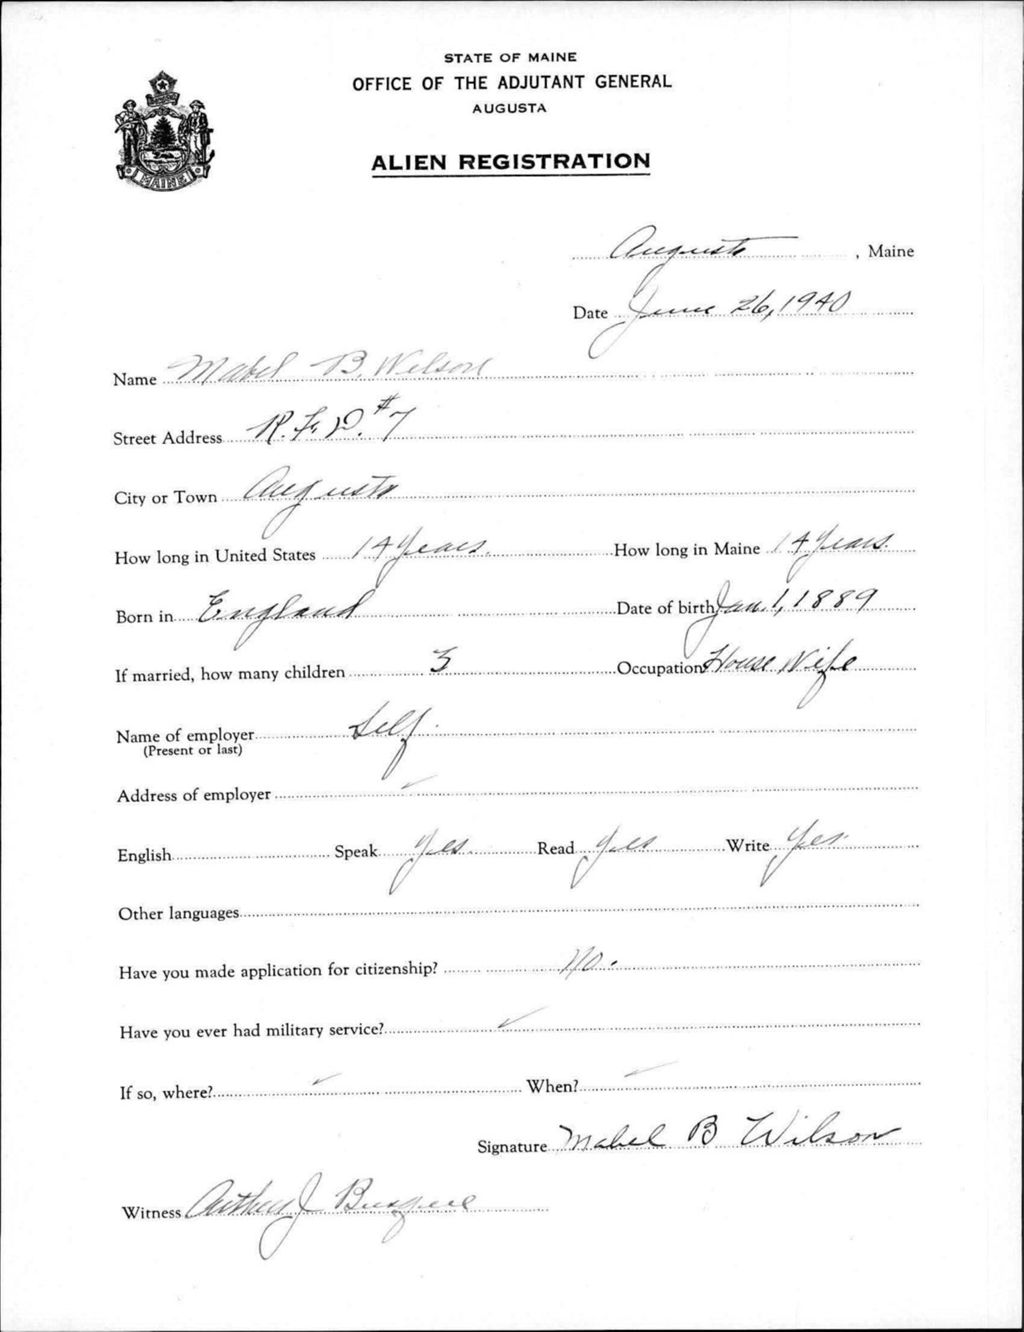 STATE OF MAINE
OFFICE OF THE ADJUTANT GENERAL
AUGUSTA
MAINE
ALIEN REGISTRATION
Augusta, Maine
Date June 26, 1940
Name Mabel B. Wilson
Street Address R.F.D. #7
City or Town Augusta
How long in United States 14 years. How long in Maine 14 years.
Born in England Date of birth Jan. 1, 1889
If married, how many children 3 Occupation House Wife
Name of employer Self.
(Present or last)
Address of employer ✓
English Speak yes. Read yes Write yes
Other languages
Have you made application for citizenship? No.
Have you ever had military service? ✓
If so, where? ✓ When? ✓
Signature Mabel B Wilson
Witness Arthur J